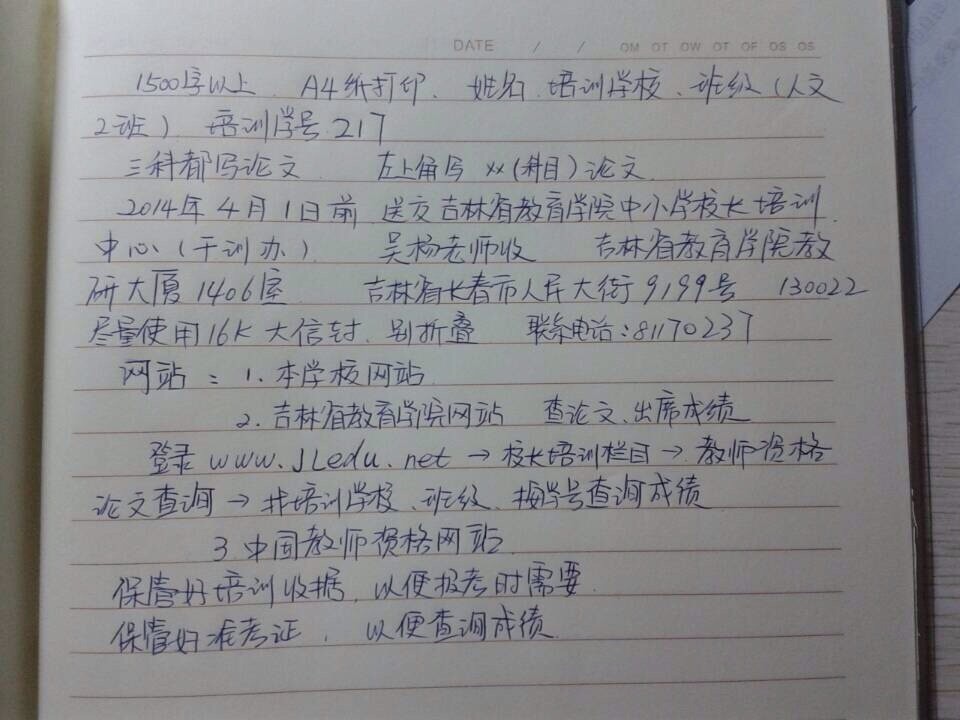 DATE / / OM OT OW OT OF OS OS
1500字以上 A4纸打印. 姓名.培训学校、班级(人文
2班) 培训学号.217
三科都写论文 左上角写 xx(科目)论文.
2014年4月1日前 送交吉林省教育学院中小学校长培训
中心(干训办) 吴杨老师收 吉林省教育学院教
研大厦1406室 吉林省长春市人民大街9199号 130022
尽量使用16K大信封、别折叠 联系电话:81170237
网站:1.本学校网站
2.吉林省教育学院网站 查论文、出席成绩
登录 www.JLedu.net→校长培训栏目→教师资格
论文查询→找培训学校、班级、按学号查询成绩
3.中国教师资格网站.
保管好培训收据,以便报考时需要.
保管好准考证,以便查询成绩.